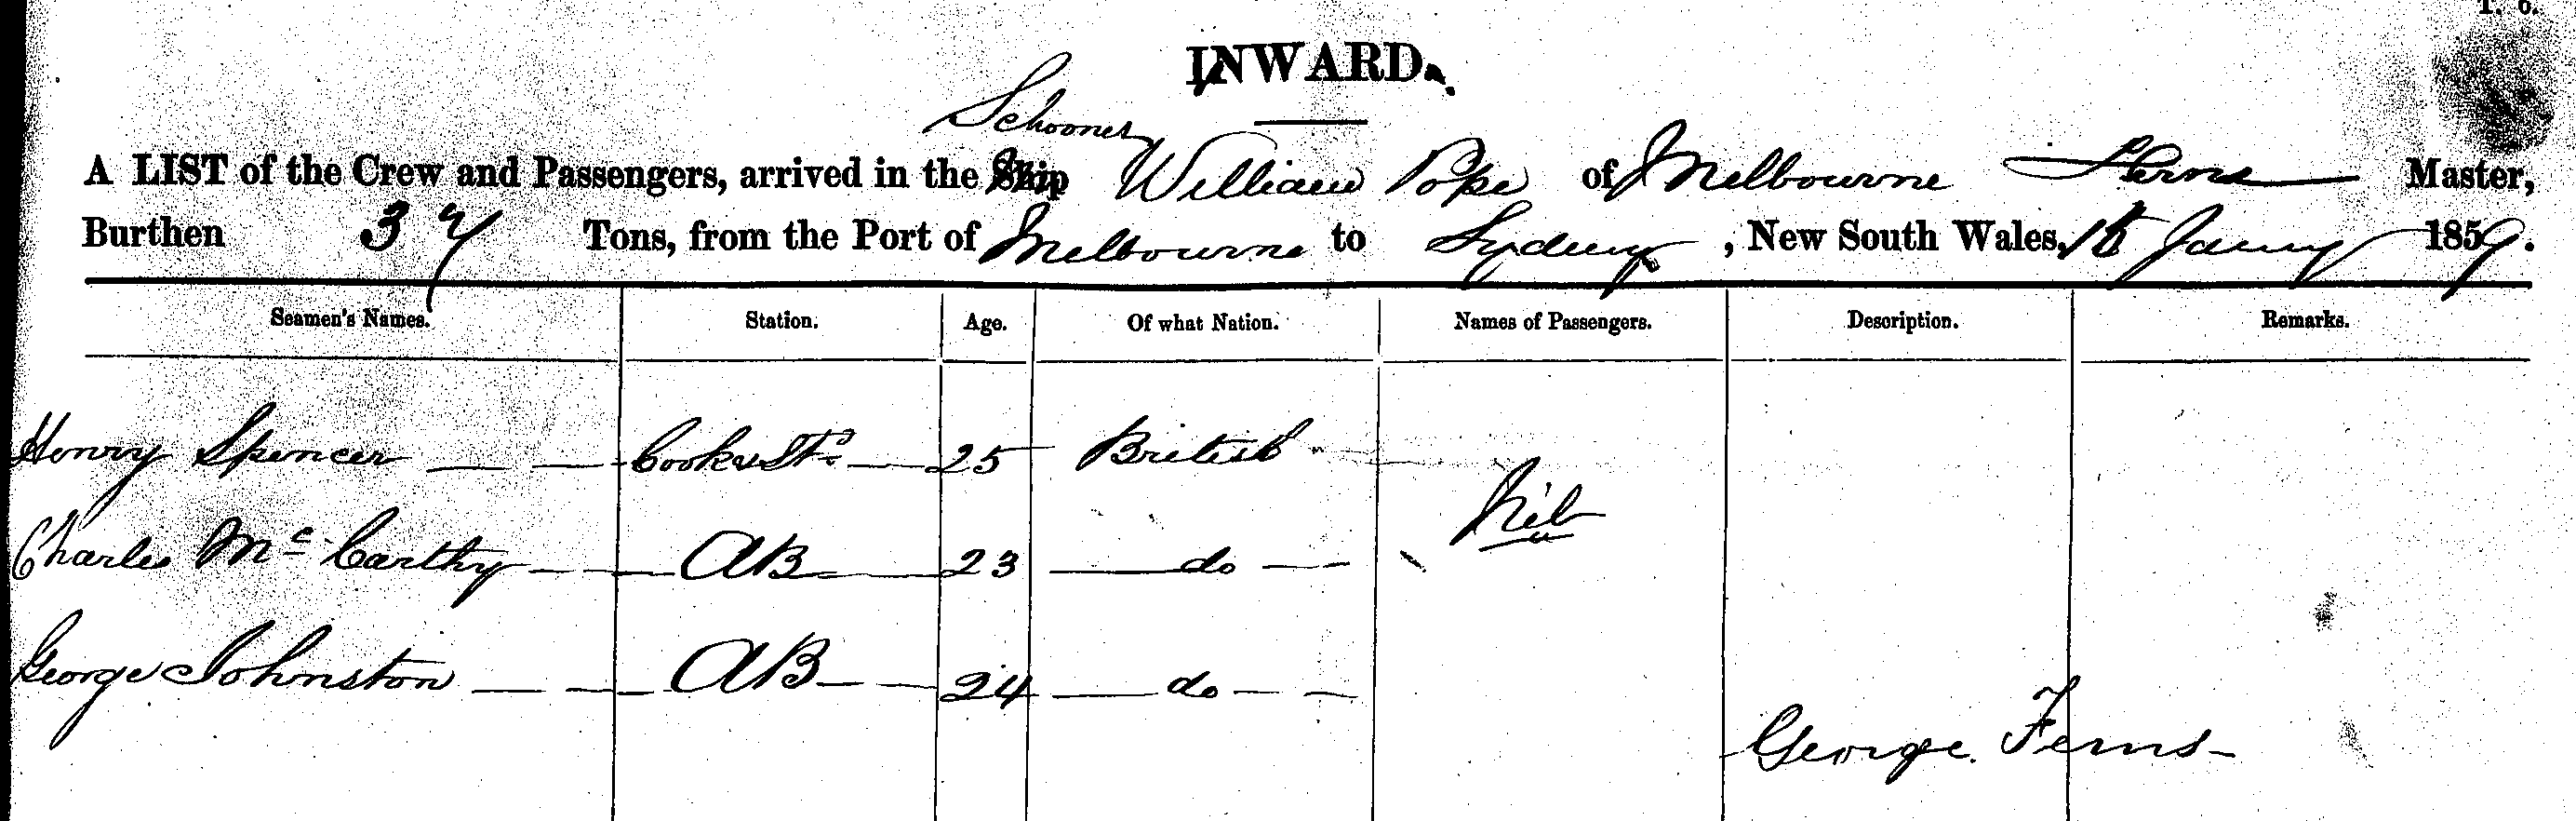 INWARD.
Schooner
A LIST of the Crew and Passengers, arrived in the Ship William Pope of Melbourne Ferns Master,
Burthen 37 Tons, from the Port of Melbourne to Sydney, New South Wales, Jany 1859.
Seamen's Names. Station. Age. Of what Nation. Names of Passengers. Description. Remarks.
Henry Spencer Cook & Std 25 British
Nil
Charles Mc Carthy AB 23 do
George Johnston AB 24 do
George Ferns